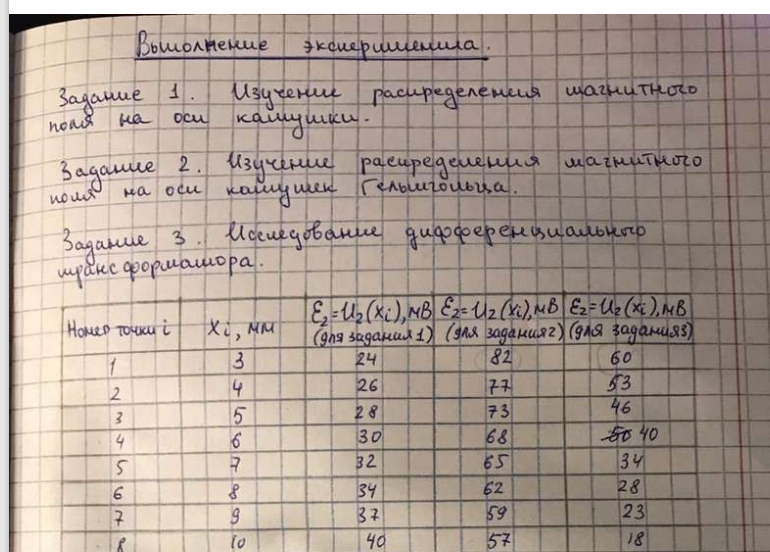 Выполнение эксперимента.
Задание 1. Изучение распределения магнитного
поля на оси катушки.
Задание 2. Изучение распределения магнитного
поля на оси катушек Гельмгольца.
Задание 3. Исследование дифференциального
трансформатора.
Номер точки i | Xi, мм | Ɛ2=U2(xi), мВ (для задания 1) | Ɛ2=U2(xi), мВ (для задания 2) | Ɛ2=U2(xi), мВ (для задания 3)
1 3 24 82 60
2 4 26 77 53
3 5 28 73 46
4 6 30 68 50 40
5 7 32 65 34
6 8 34 62 28
7 9 37 59 23
8 10 40 57 18